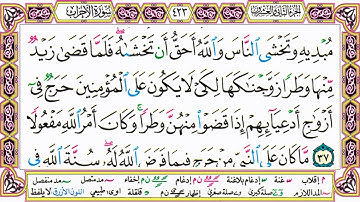 الجزء الثاني والعشرون ٤٢٣ سورة الأحزاب
مُبْدِيهِ وَتَخْشَى النَّاسَ وَاللَّهُ أَحَقُّ أَن تَخْشَىٰهُ فَلَمَّا قَضَىٰ زَيْدٌ
مِّنْهَا وَطَرًا زَوَّجْنَٰكَهَا لِكَىْ لَا يَكُونَ عَلَى الْمُؤْمِنِينَ حَرَجٌ فِىٓ
أَزْوَٰجِ أَدْعِيَآئِهِمْ إِذَا قَضَوْا۟ مِنْهُنَّ وَطَرًا وَكَانَ أَمْرُ اللَّهِ مَفْعُولًا
٣٧ مَّا كَانَ عَلَى النَّبِىِّ مِنْ حَرَجٍ فِيمَا فَرَضَ اللَّهُ لَهُۥ سُنَّةَ اللَّهِ فِى